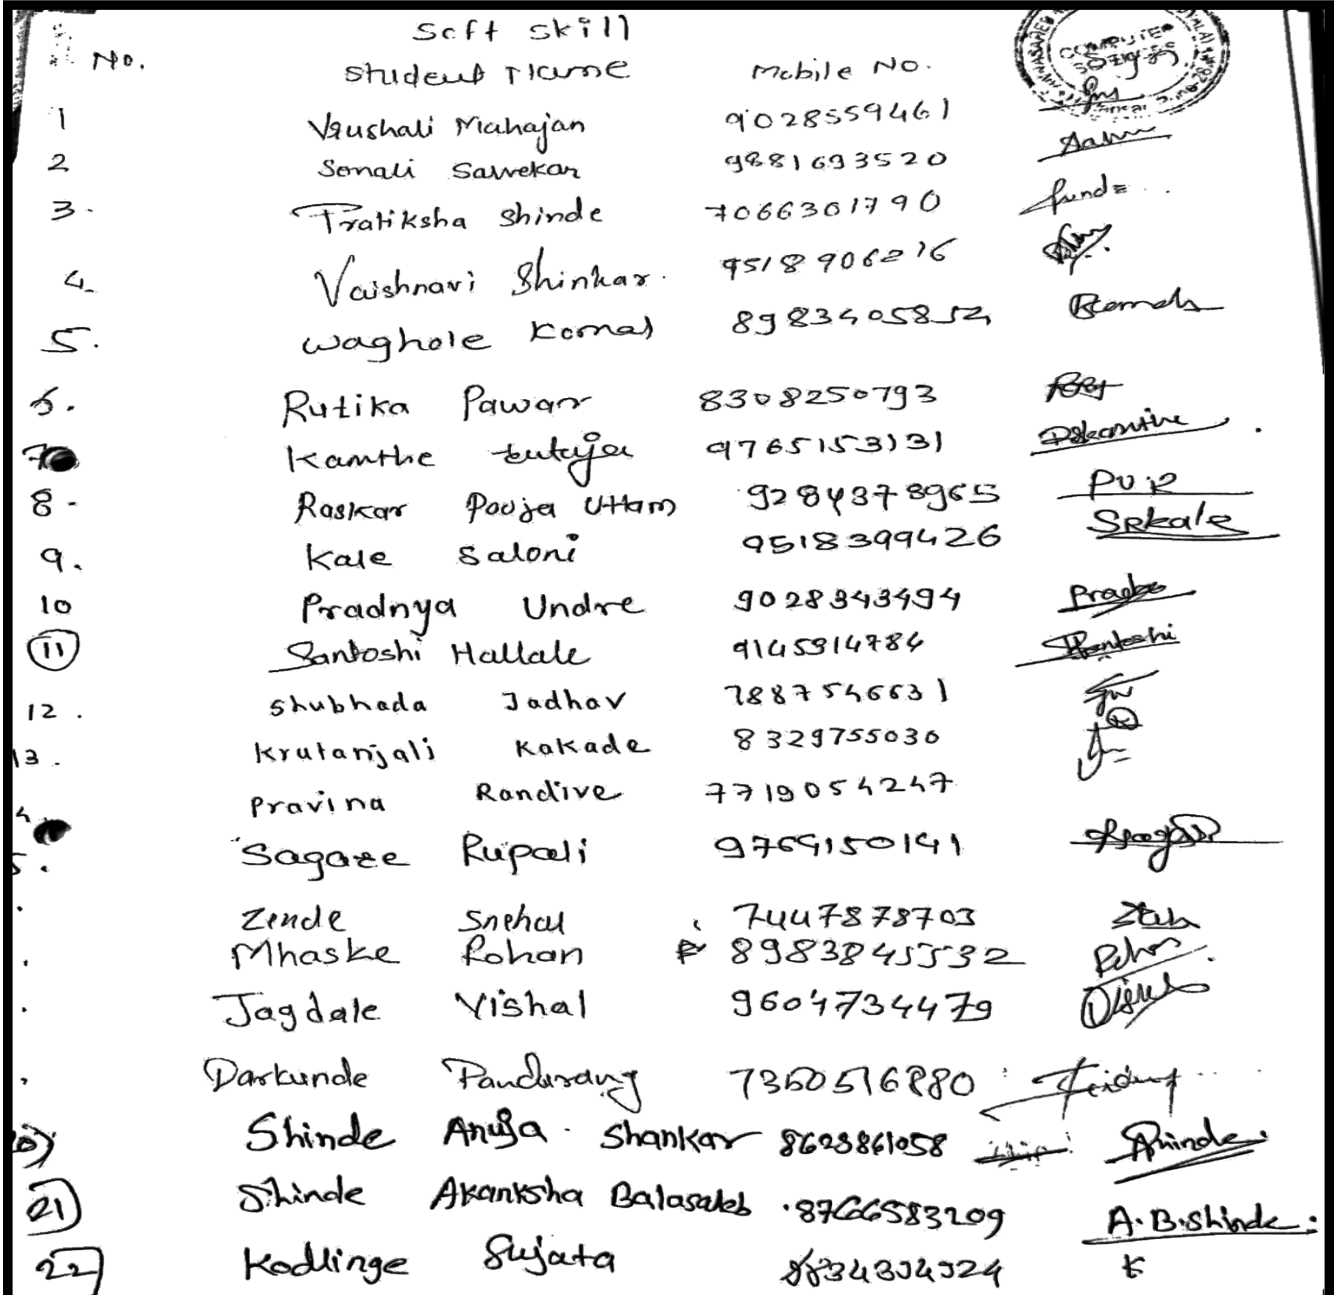 Soft Skill
No. Student Name Mobile No.
COMPUTER
1 Vaushali Mahajan 9028559461
2 Sonali Sawekar 9881693520
3. Pratiksha Shinde 7066301790
4. Vaishnavi Shinkar. 9518906216
5. Waghole Komal 8983405852 Komal
6. Rutika Pawar 8308250793
7 Kamthe 9765153131
8. Raskar Pooja Uttam 9284378965 PUR
9. Kale Saloni 9518399426 SRkale
10 Pradnya Undre 9028343494
11 Santoshi Hallale 9145914784 Santoshi
12. Shubhada Jadhav 7887546631
13. Krutanjali Kakade 8329755030
4. Pravina Randive 7719054247
5. Sagare Rupali 9769150191
Zende Snehal 7447878703
Mhaske Rohan 8983845532
Jagdale Vishal 9604734479
Darkunde Pandurang 7350516880
Shinde Anuja Shankar 8623861058 Shinde.
21) Shinde Akanksha Balasaheb 8766583209 A.B.Shinde.
22) Kodlinge Sujata K